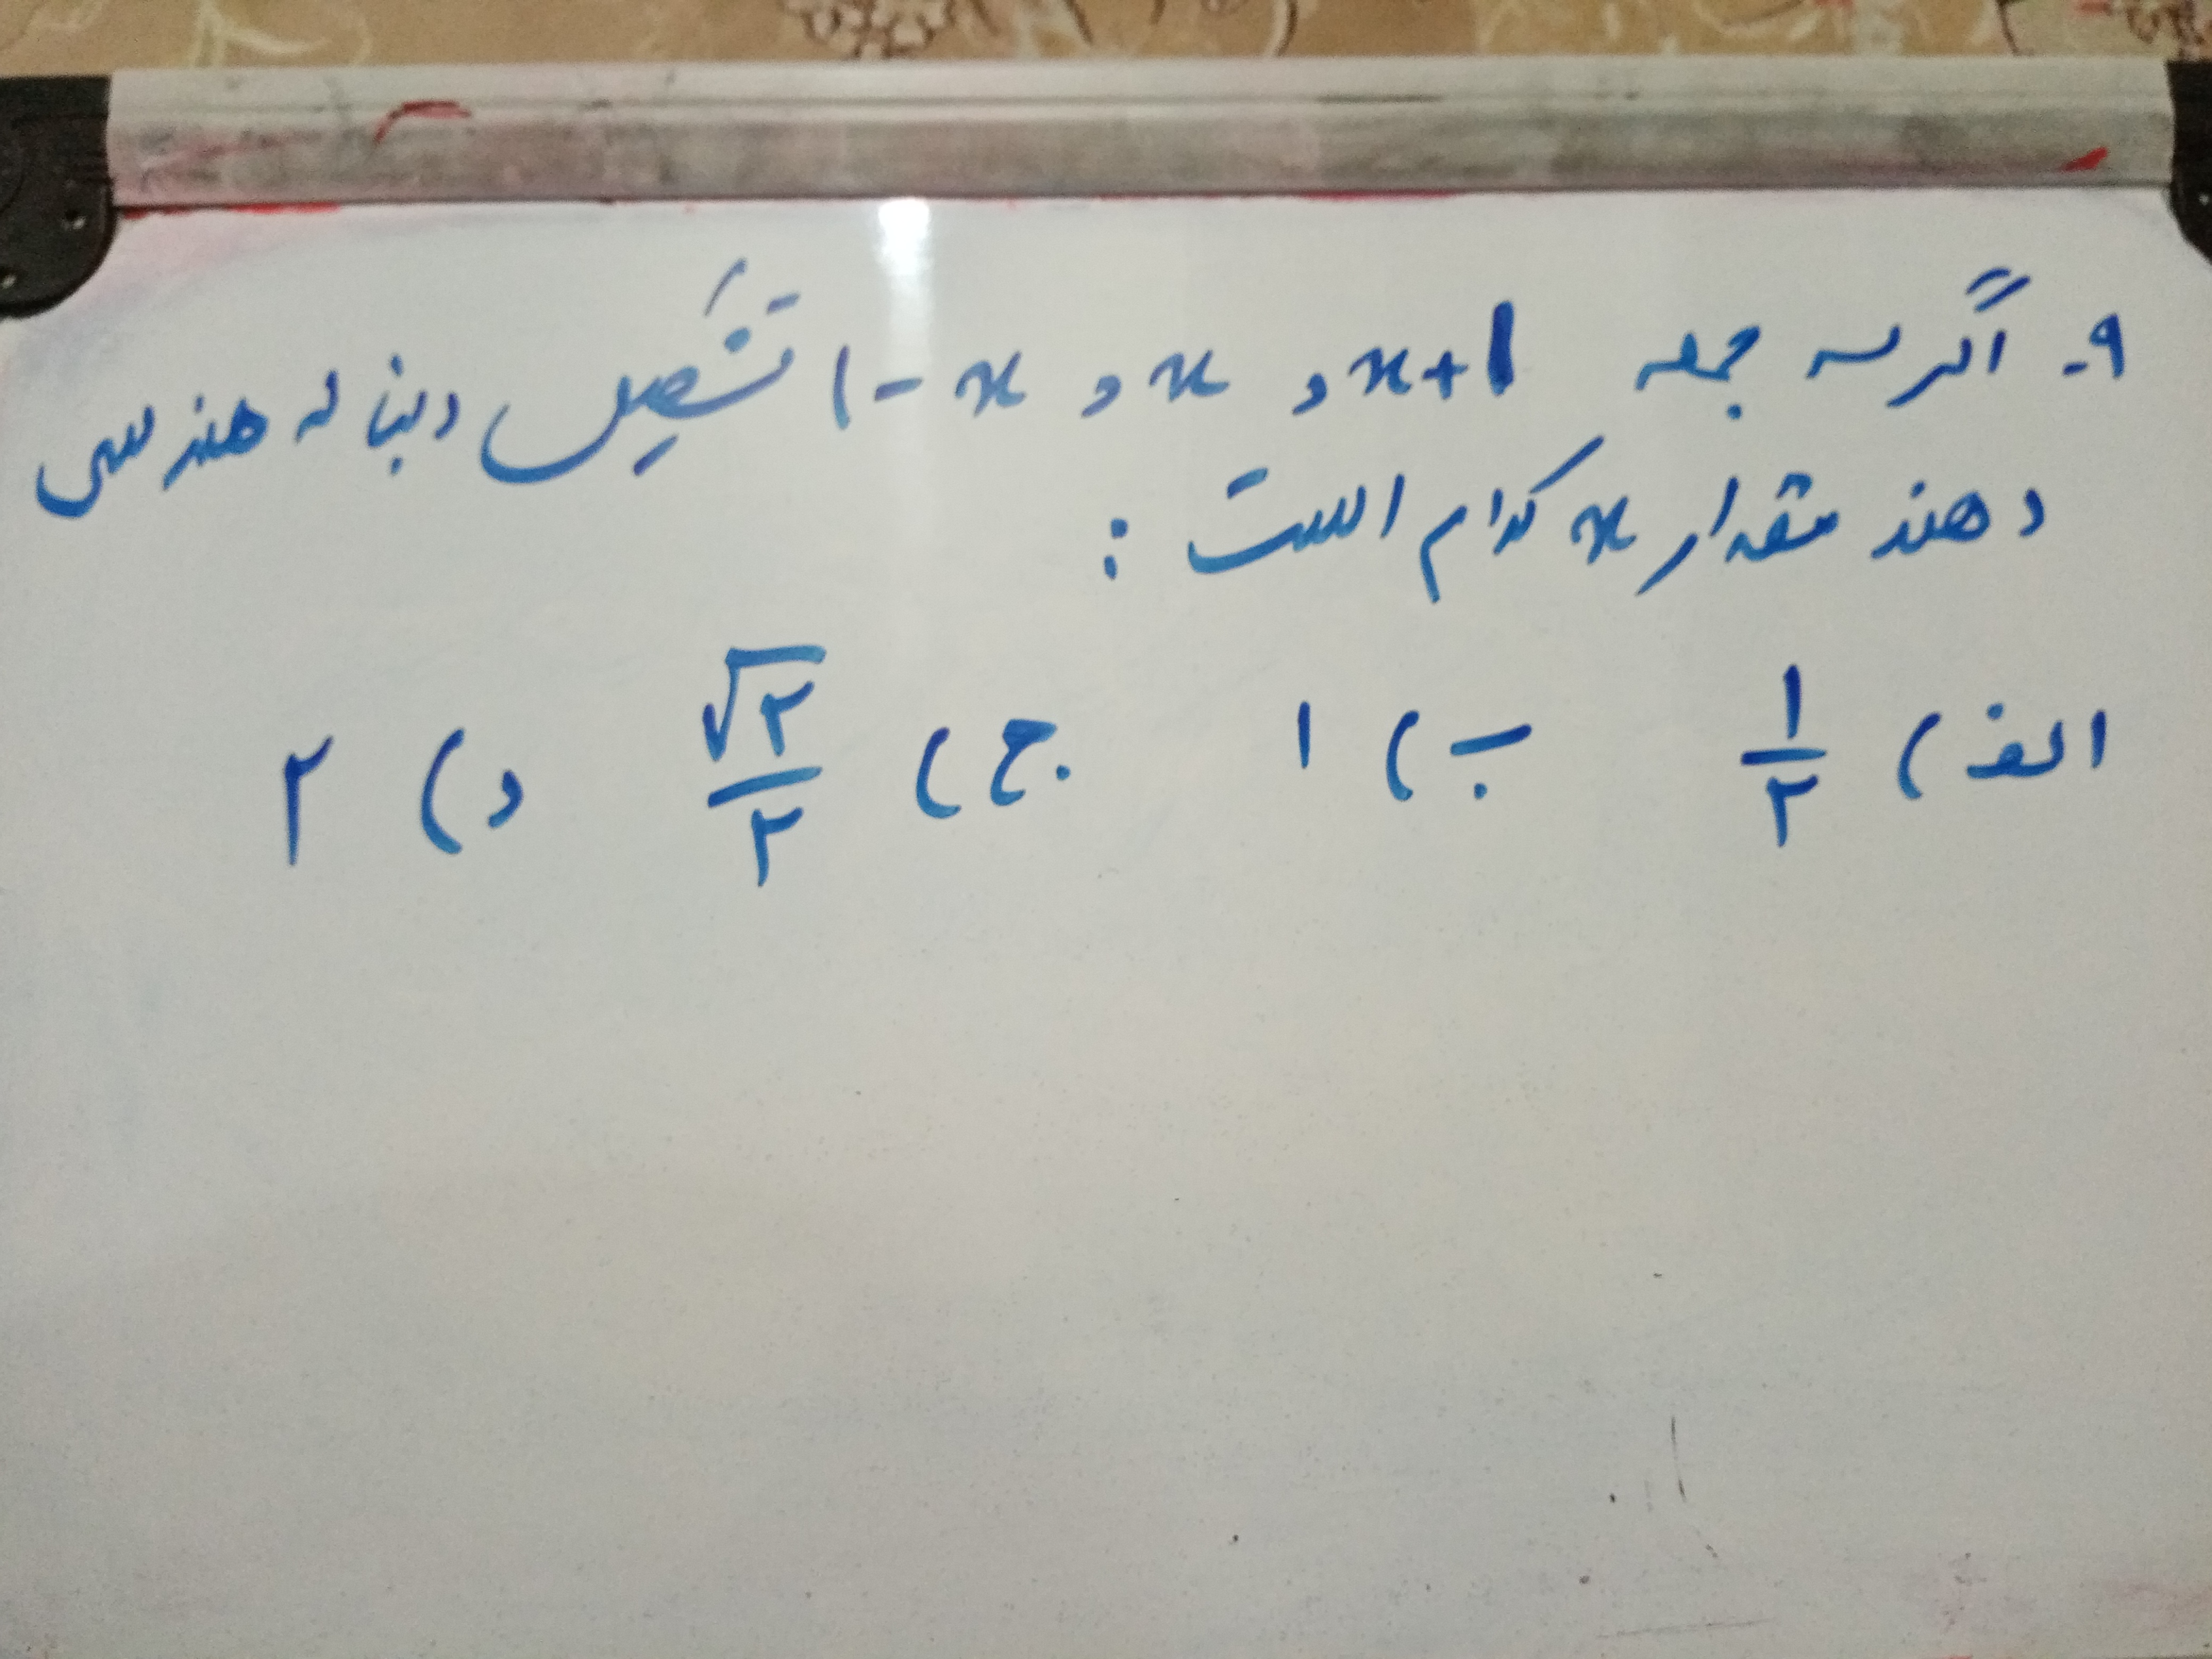 ۹- اگر سه جمله x+1 , x , 1-x تشکیل دنباله هندسی
دهند مقدار x کدام است :
الف) ۱/۲ ب) ۱ ج) √۲/۲ د) ۲